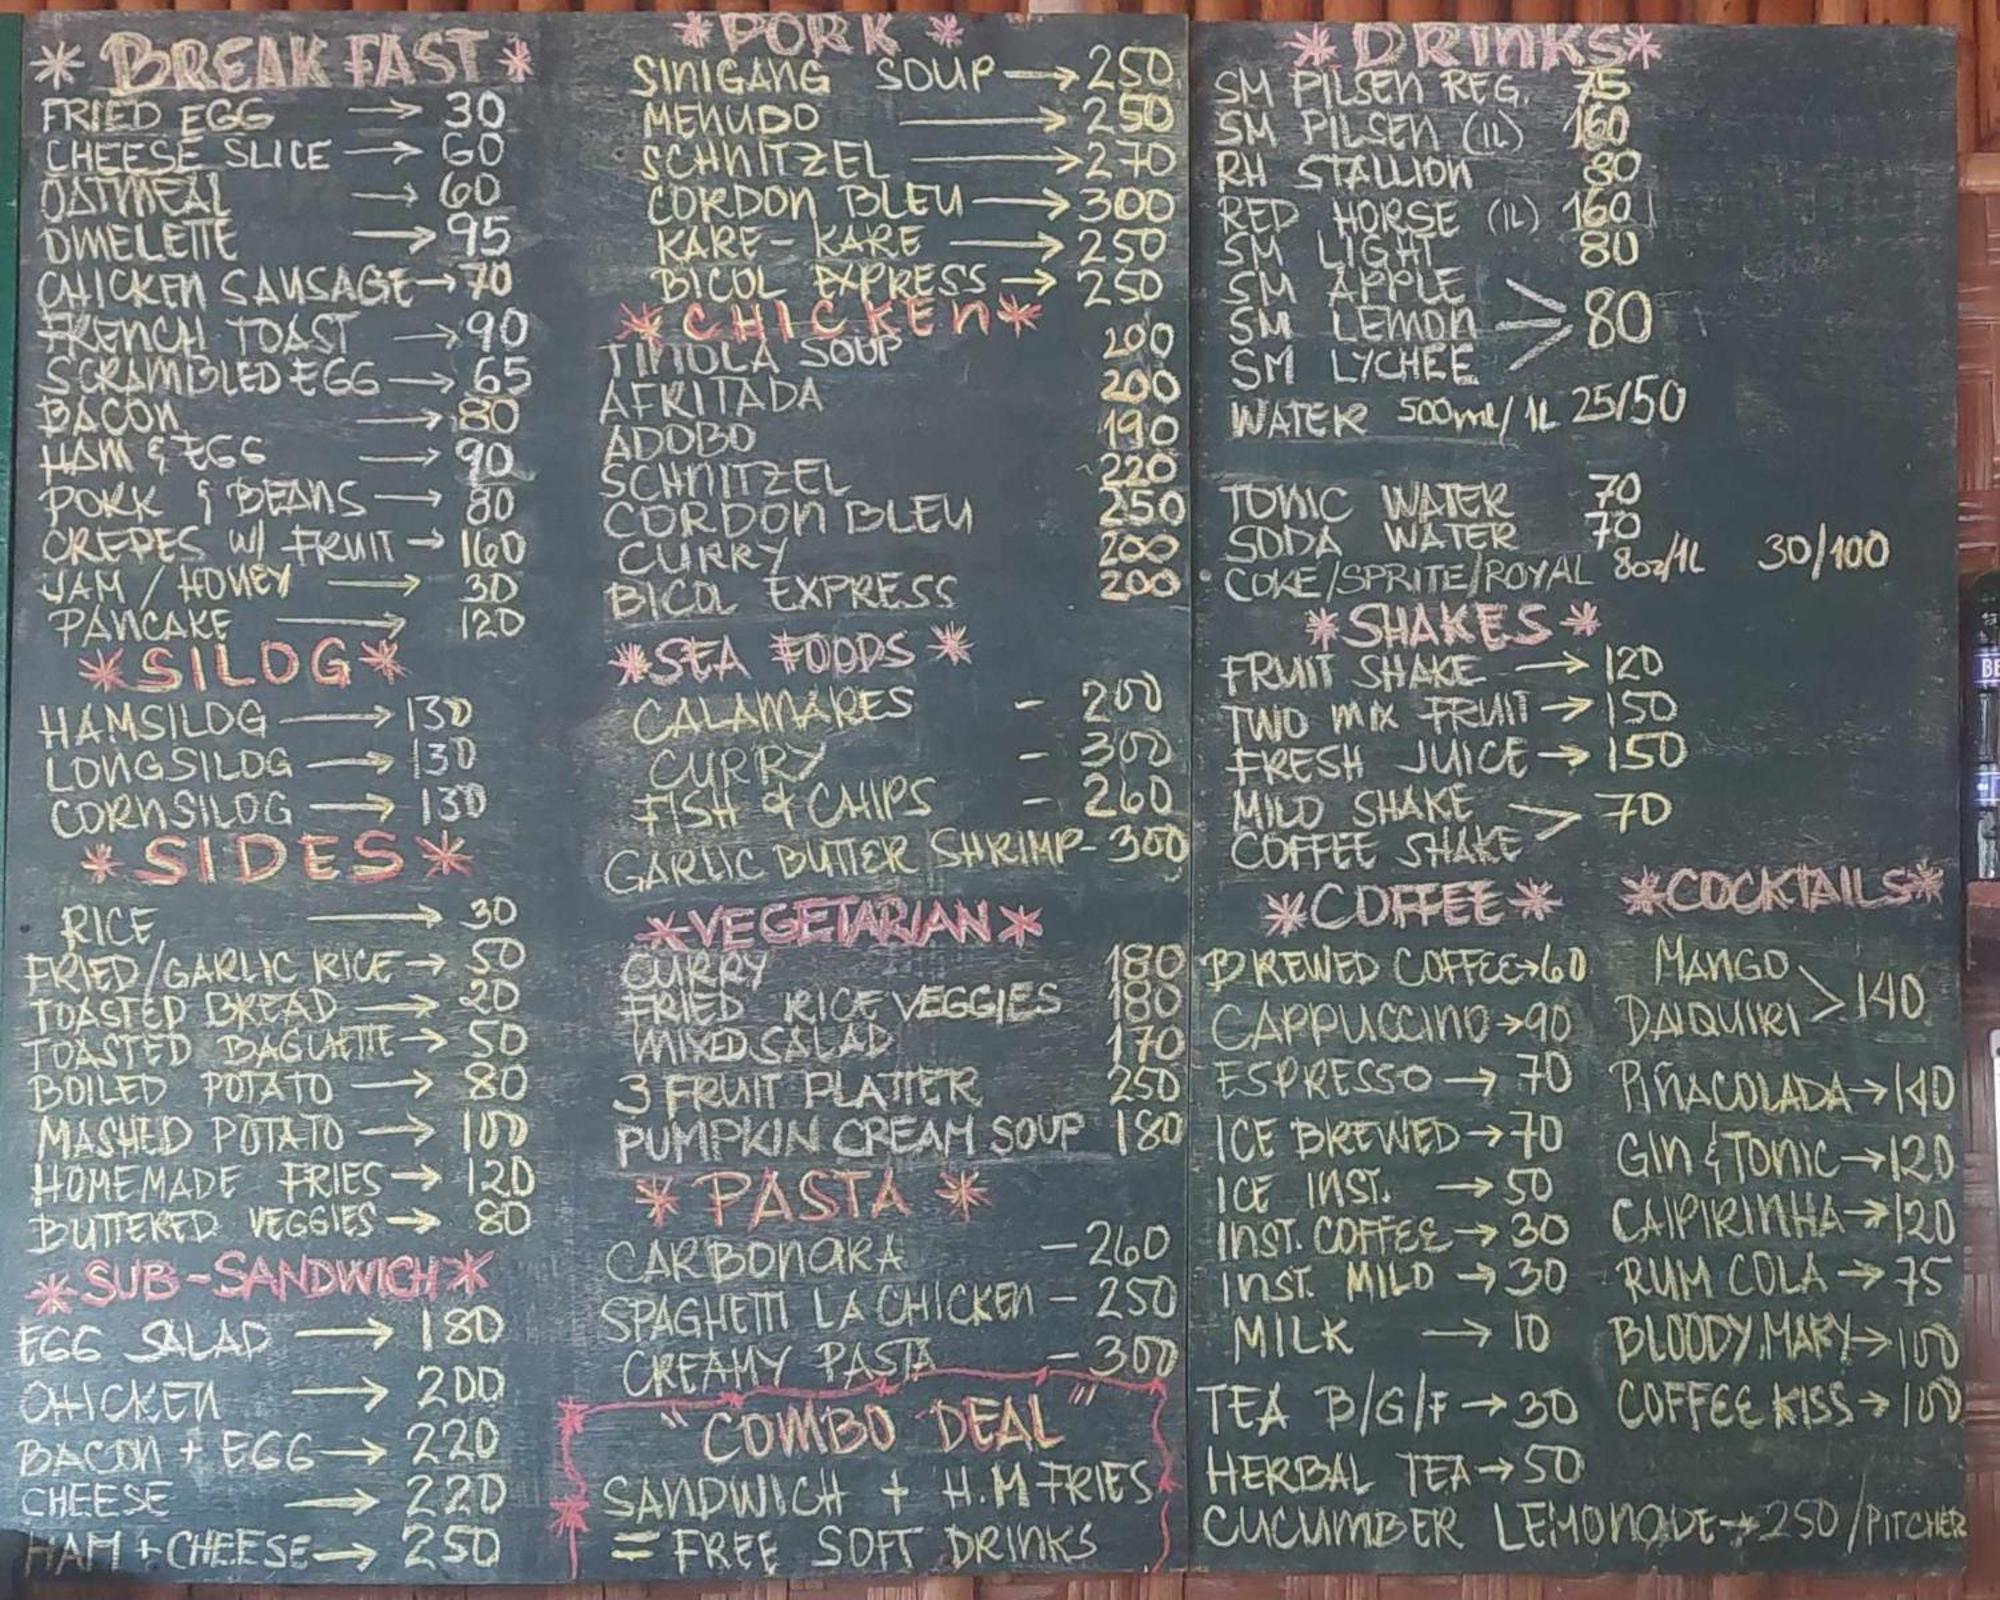 * BREAKFAST *
FRIED EGG → 30
CHEESE SLICE → 60
OATMEAL → 60
OMELETTE → 95
CHICKEN SAUSAGE → 70
FRENCH TOAST → 90
SCRAMBLED EGG → 65
BACON → 80
HAM & EGG → 90
PORK & BEANS → 80
CREPES W/ FRUIT → 160
JAM / HONEY → 30
PANCAKE → 120
* SILOG *
HAMSILOG → 130
LONGSILOG → 130
CORNSILOG → 130
* SIDES *
RICE → 30
FRIED/GARLIC RICE → 50
TOASTED BREAD → 20
TOASTED BAGUETTE → 50
BOILED POTATO → 80
MASHED POTATO → 100
HOMEMADE FRIES → 120
BUTTERED VEGGIES → 80
* SUB-SANDWICH *
EGG SALAD → 180
CHICKEN → 200
BACON + EGG → 220
CHEESE → 220
HAM + CHEESE → 250
* PORK *
SINIGANG SOUP → 250
MENUDO → 250
SCHNITZEL → 270
CORDON BLEU → 300
KARE-KARE → 250
BICOL EXPRESS → 250
* CHICKEN *
TINOLA SOUP 200
AFRITADA 200
ADOBO 190
SCHNITZEL 220
CORDON BLEU 250
CURRY 200
BICOL EXPRESS 200
* SEA FOODS *
CALAMARES - 200
CURRY - 300
FISH & CHIPS - 260
GARLIC BUTTER SHRIMP - 300
* VEGETARIAN *
CURRY 180
FRIED RICE VEGGIES 180
MIXED SALAD 170
3 FRUIT PLATTER 250
PUMPKIN CREAM SOUP 180
* PASTA *
CARBONARA - 260
SPAGHETTI LA CHICKEN - 250
CREAMY PASTA - 300
"COMBO DEAL"
SANDWICH + H.M FRIES
= FREE SOFT DRINKS
* DRINKS *
SM PILSEN REG. 75
SM PILSEN (1L) 160
RH STALLION 80
RED HORSE (1L) 160
SM LIGHT 80
SM APPLE
SM LEMON > 80
SM LYCHEE
WATER 500ml/1L 25/50
TONIC WATER 70
SODA WATER 70
COKE/SPRITE/ROYAL 8oz/1L 30/100
* SHAKES *
FRUIT SHAKE → 120
TWO MIX FRUIT → 150
FRESH JUICE → 150
MILO SHAKE > 70
COFFEE SHAKE
* COFFEE *
BREWED COFFEE → 60
CAPPUCCINO → 90
ESPRESSO → 70
ICE BREWED → 70
ICE INST. → 50
INST. COFFEE → 30
INST. MILO → 30
MILK → 10
TEA B/G/F → 30
HERBAL TEA → 50
CUCUMBER LEMONADE → 250 / PITCHER
* COCKTAILS *
MANGO
DAIQUIRI > 140
PIÑACOLADA → 140
GIN & TONIC → 120
CAIPIRINHA → 120
RUM COLA → 75
BLOODY.MARY → 100
COFFEE KISS → 100